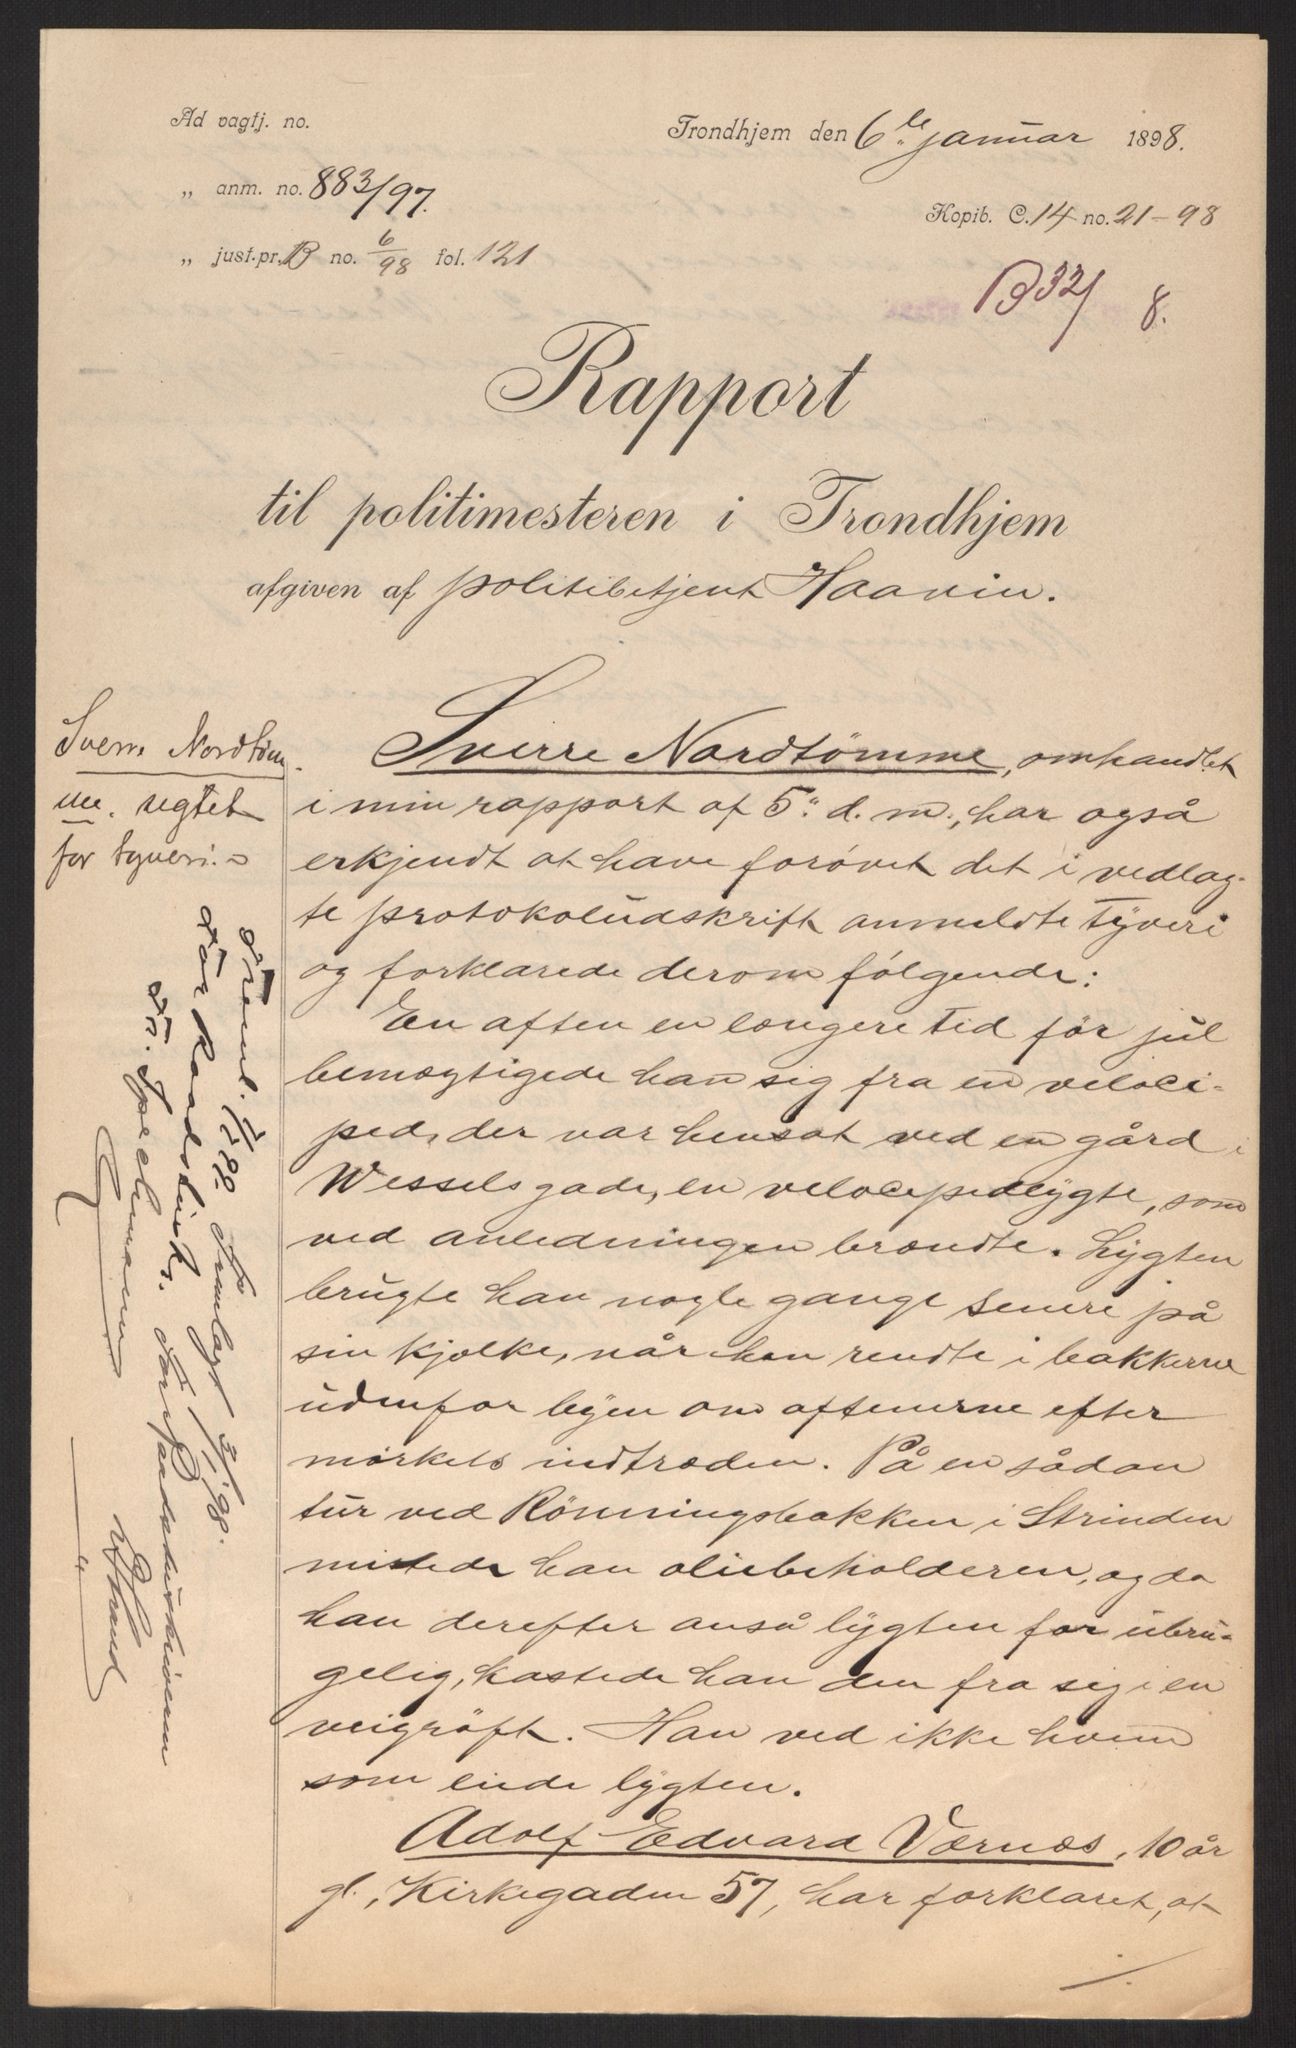 Ad vagtj. no.
Trondhjem den 6te januar 1898.
„ anm. no. 883/97.
Kopib. C. 14 no. 21-98
„ just.pr. B no. 6/98 fol. 121
B 32/8.
Rapport
til politimesteren i Trondhjem
afgiven af politibetjent Haavin.
Sverre Nordtöm
me. sigtet
for tyveri.
Sverre Nordtömme, omhandlet
i min rapport af 5" d. m., har også
erkjendt at have forøvet det i vedlag-
te protokoludskrift anmeldte tyveri
og forklarede derom følgende:
En aften en længere tid før jul
bemægtigede han sig fra en veloci-
ped, der var hensat ved en gård i
Wesselsgade, en velocipedlygte, som
ved anledningen brændte. Lygten
brugte han nogle gange senere på
sin kjælke, når han rendte i bakkerne
udenfor byen om aftenerne efter
mørkets indtræden. På en sådan
tur ved Rönningsbakken i Strinden
mistede han oliebeholderen, og da
han derefter anså lygten for ubru-
gelig, kastede han den fra sig i en
veigrøft. Han ved ikke hvem
som eiede lygten.
Adolf Edvard Værnes, 10 år
gl., Kirkegaden 57, har forklaret, at
Fremlagt